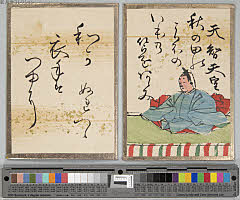 天智天皇
秋の田の
かりほの
いほの
とまをあらみ
わか
衣手は
つゆに
ぬれつゝ